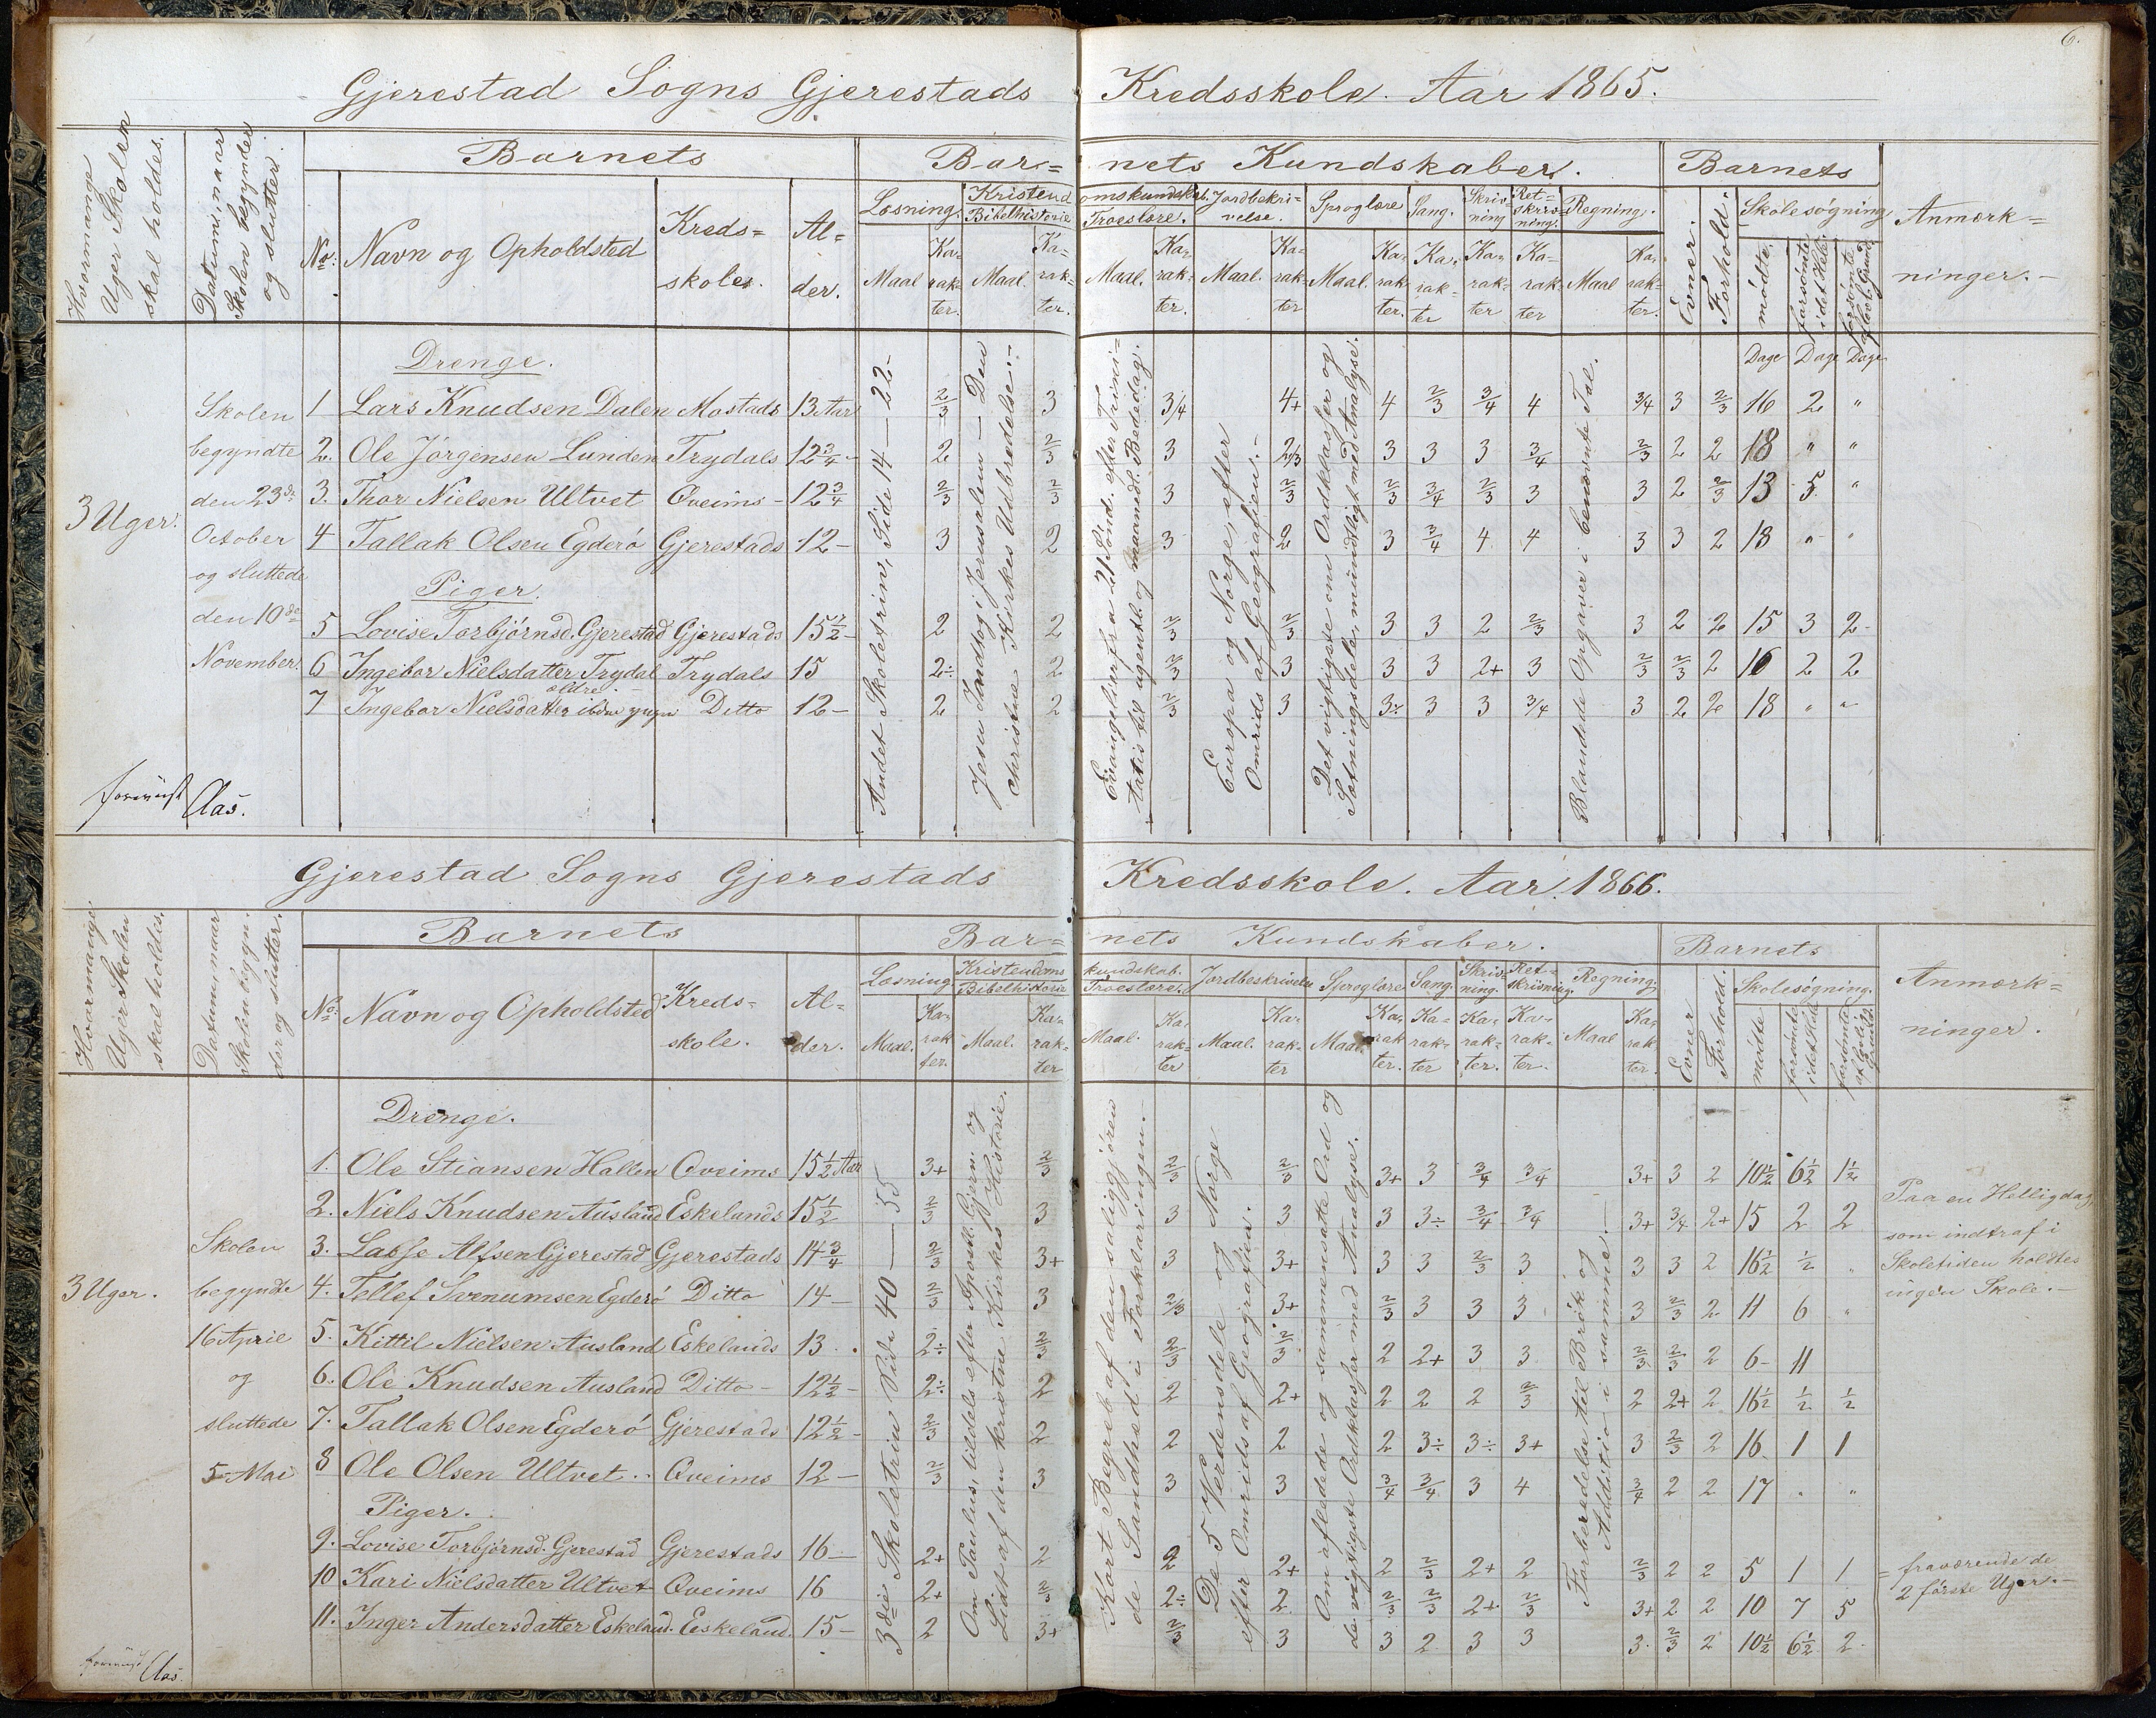 6.
Gjerestad Sogns Gjerestads Kredsskole. Aar 1865.
Hvormange Uger Skolen skal holdes.
Datum, naar Skolen begynder og slutter.
Barnets
Barnets Kundskaber.
Barnets
Anmærkninger.
No. Navn og Opholdsted Kredsskoles. Alder.
Læsning. Kristendomskundskab. Jordbeskrivelse. Sproglære Sang. Skrivning Retskrivning. Regning.
Bibelhistorie Troeslære.
Evner. Forhold. Skolesøgning
Maal Karakter. Maal. Karakter. Maal. Karakter. Maal. Karakter Maal. Karakter. Karakter Karakter Karakter Maal Karakter. mødte forsømte i det Hele forsømte af lovl. Grund
3 Uger.
Skolen
begyndte
den 23de
October
og sluttede
den 10de
November.
Andet Skoletrin, Side 14 — 22.
Jesu Indtog i Jerusalem — Den christne Kirkes Udbredelse.
Evangelierne fra 21 Sönd. efter Trinitatis til ugentt. og maanedl. Bededag.
Europa og Norge, efter
Omrids af Geografien.
Det vigtigste om Ordklasser og
Sætningsdele, mündtligt med Analyse.
Blandede Opgaver i benævnte Tal.
Drenge. Dage Dage Dage
1 Lars Knudsen Dalen Mostads 13 Aar 2/3 3 3/4 4+ 4 2/3 3/4 4 3/4 3 2/3 16 2 "
2. Ole Jörgensen Lunden Trydals 12 3/4 - 2 2/3 3 2/3 3 3 3 3/4 2/3 2 2 18 " "
3. Thor Nielsen Ultvet Qveims - 12 3/4 2/3 2/3 3 2/3 2/3 3/4 2/3 3 3 2 2/3 13 5 "
4 Tallak Olsen Egderö Gjerestads 12 - 3 2 3 2 3 3/4 4 4 3 3 2 18 " "
Piger.
5 Lovise Torbjörnsd. Gjerestad Gjerestads 15 1/2 - 2 2 2/3 2/3 3 3 2 2/3 3 2 2 15 3 2
6 Ingebor Nielsdatter Trydal ældre. Trydals 15 2÷ 2 2/3 3 3 3 2+ 3 2/3 2/3 2 16 2 2
7 Ingebor Nielsdatter ibdm yngr Ditto 12 - 2 2 2/3 3 3÷ 3 3 3/4 3 2 2 18 " "
Aas.
Gjerestad Sogns Gjerestads Kredsskole. Aar. 1866.
Hvormange Uger Skolen skal holdes.
Datum, naar Skolen begynder og slutter.
Barnets
Barnets Kundskaber.
Barnets
Anmærkninger.
No. Navn og Opholdsted Kredsskole. Alder.
Læsning Kristendomskundskab. Jordbeskrivelse Sproglære Sang. Skrivning. Retskrivning. Regning.
Bibelhistorie Troeslære.
Evner Forhold. Skolesøgning.
Maal. Karakter. Maal. Karakter Maal. Karakter Maal. Karakter Maal. Karakter. Karakter Karakter. Karakter. Maal Karakter. mødte forsømte i det Hele forsømte af lovlig Grund
3 Uger.
Skolen
begyndte
16 April
og
sluttede
5 Mai
3die Skoletrin Side 40 — 55
Om Paulus, tildels efter Apostl. Gjern. og
Lidt af den kristne Kirkes Historie.
Kort Begreb af den saliggjørende Sandhed i Forklaringen.
De 5 Verdensdele og Norge
efter Omrids af Geografien.
Om afledede og sammensatte Ord og
de vigtigste Ordklasser med Analyse.
Forberedelse til Brök og
Addition i samme.
Drenge.
1. Ole Stiansen Hallen Qveims 15 1/2 Aar 3+ 2/3 2/3 2/3 3+ 3 3/4 3/4 3+ 3 2 10 1/2 6 1/2 1 1/2
2. Niels Knudsen Ausland Eskelands 15 1/2 2/3 3 3 3 3 3÷ 3/4 3/4 3+ 3/4 2+ 15 2 2
3. Lasse Alfsen Gjerestad Gjerestads 14 3/4 2/3 3+ 3 3+ 3 3 2/3 3 3 3 2 16 1/2 1/2 "
4. Tellef Svenumsen Egderö Ditto 14 - 2/3 3 2/3 3+ 2/3 3 3 3 3 2/3 2 11 6 "
5. Kittil Nielsen Ausland Eskelands 13 2÷ 2/3 2/3 2/3 2 2+ 3 3 2/3 2/3 2 6 11
6. Ole Knudsen Ausland Ditto - 12 1/2 - 2÷ 2 2 2+ 2 2 2 2/3 2 2+ 2 16 1/2 1/2 1/2
7. Tallak Olsen Egderö Gjerestads 12 1/2 - 2/3 2 2 2 2 3÷ 3÷ 3+ 3 2/3 2 16 1 1
8 Ole Olsen Ultvet Qveims 12 - 2/3 3 3 3 3/4 3/4 3 4 3/4 2 2 17 " "
Piger.
9. Lovise Torbjørnsd. Gjerestad Gjerestads 16 - 2+ 2 2 2+ 2 2/3 2+ 2 2/3 2 2 5 1 1
10 Kari Nielsdatter Ultvet Qveims 16 2+ 2/3 2÷ 2 2/3 2/3 2+ 2/3 3+ 2 2 10 7 5
11. Inger Andersdatter Eskeland. Eeskeland. 15 - 2 3+ 2/3 3 3 2 3 3 3 2/3 2 10 1/2 6 1/2 2
Paa en Helligdag,
som indtraf i
Skoletiden holdtes
ingen Skole.
= fraværende de
2 første Uger.
Aas.